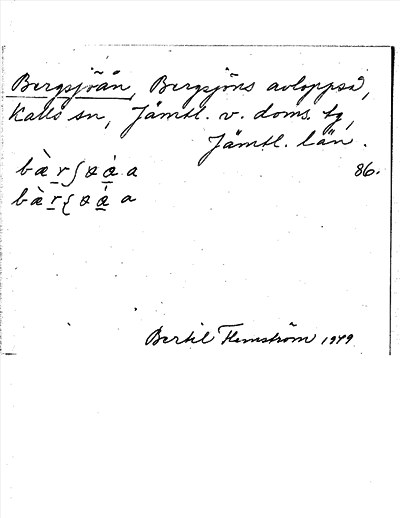 Bergsjöån, Bergsjöns avloppså,
Kalls sn, Jämtl. v. doms. tg,
Jämtl. län.
86.
Bertil Flemström 1949